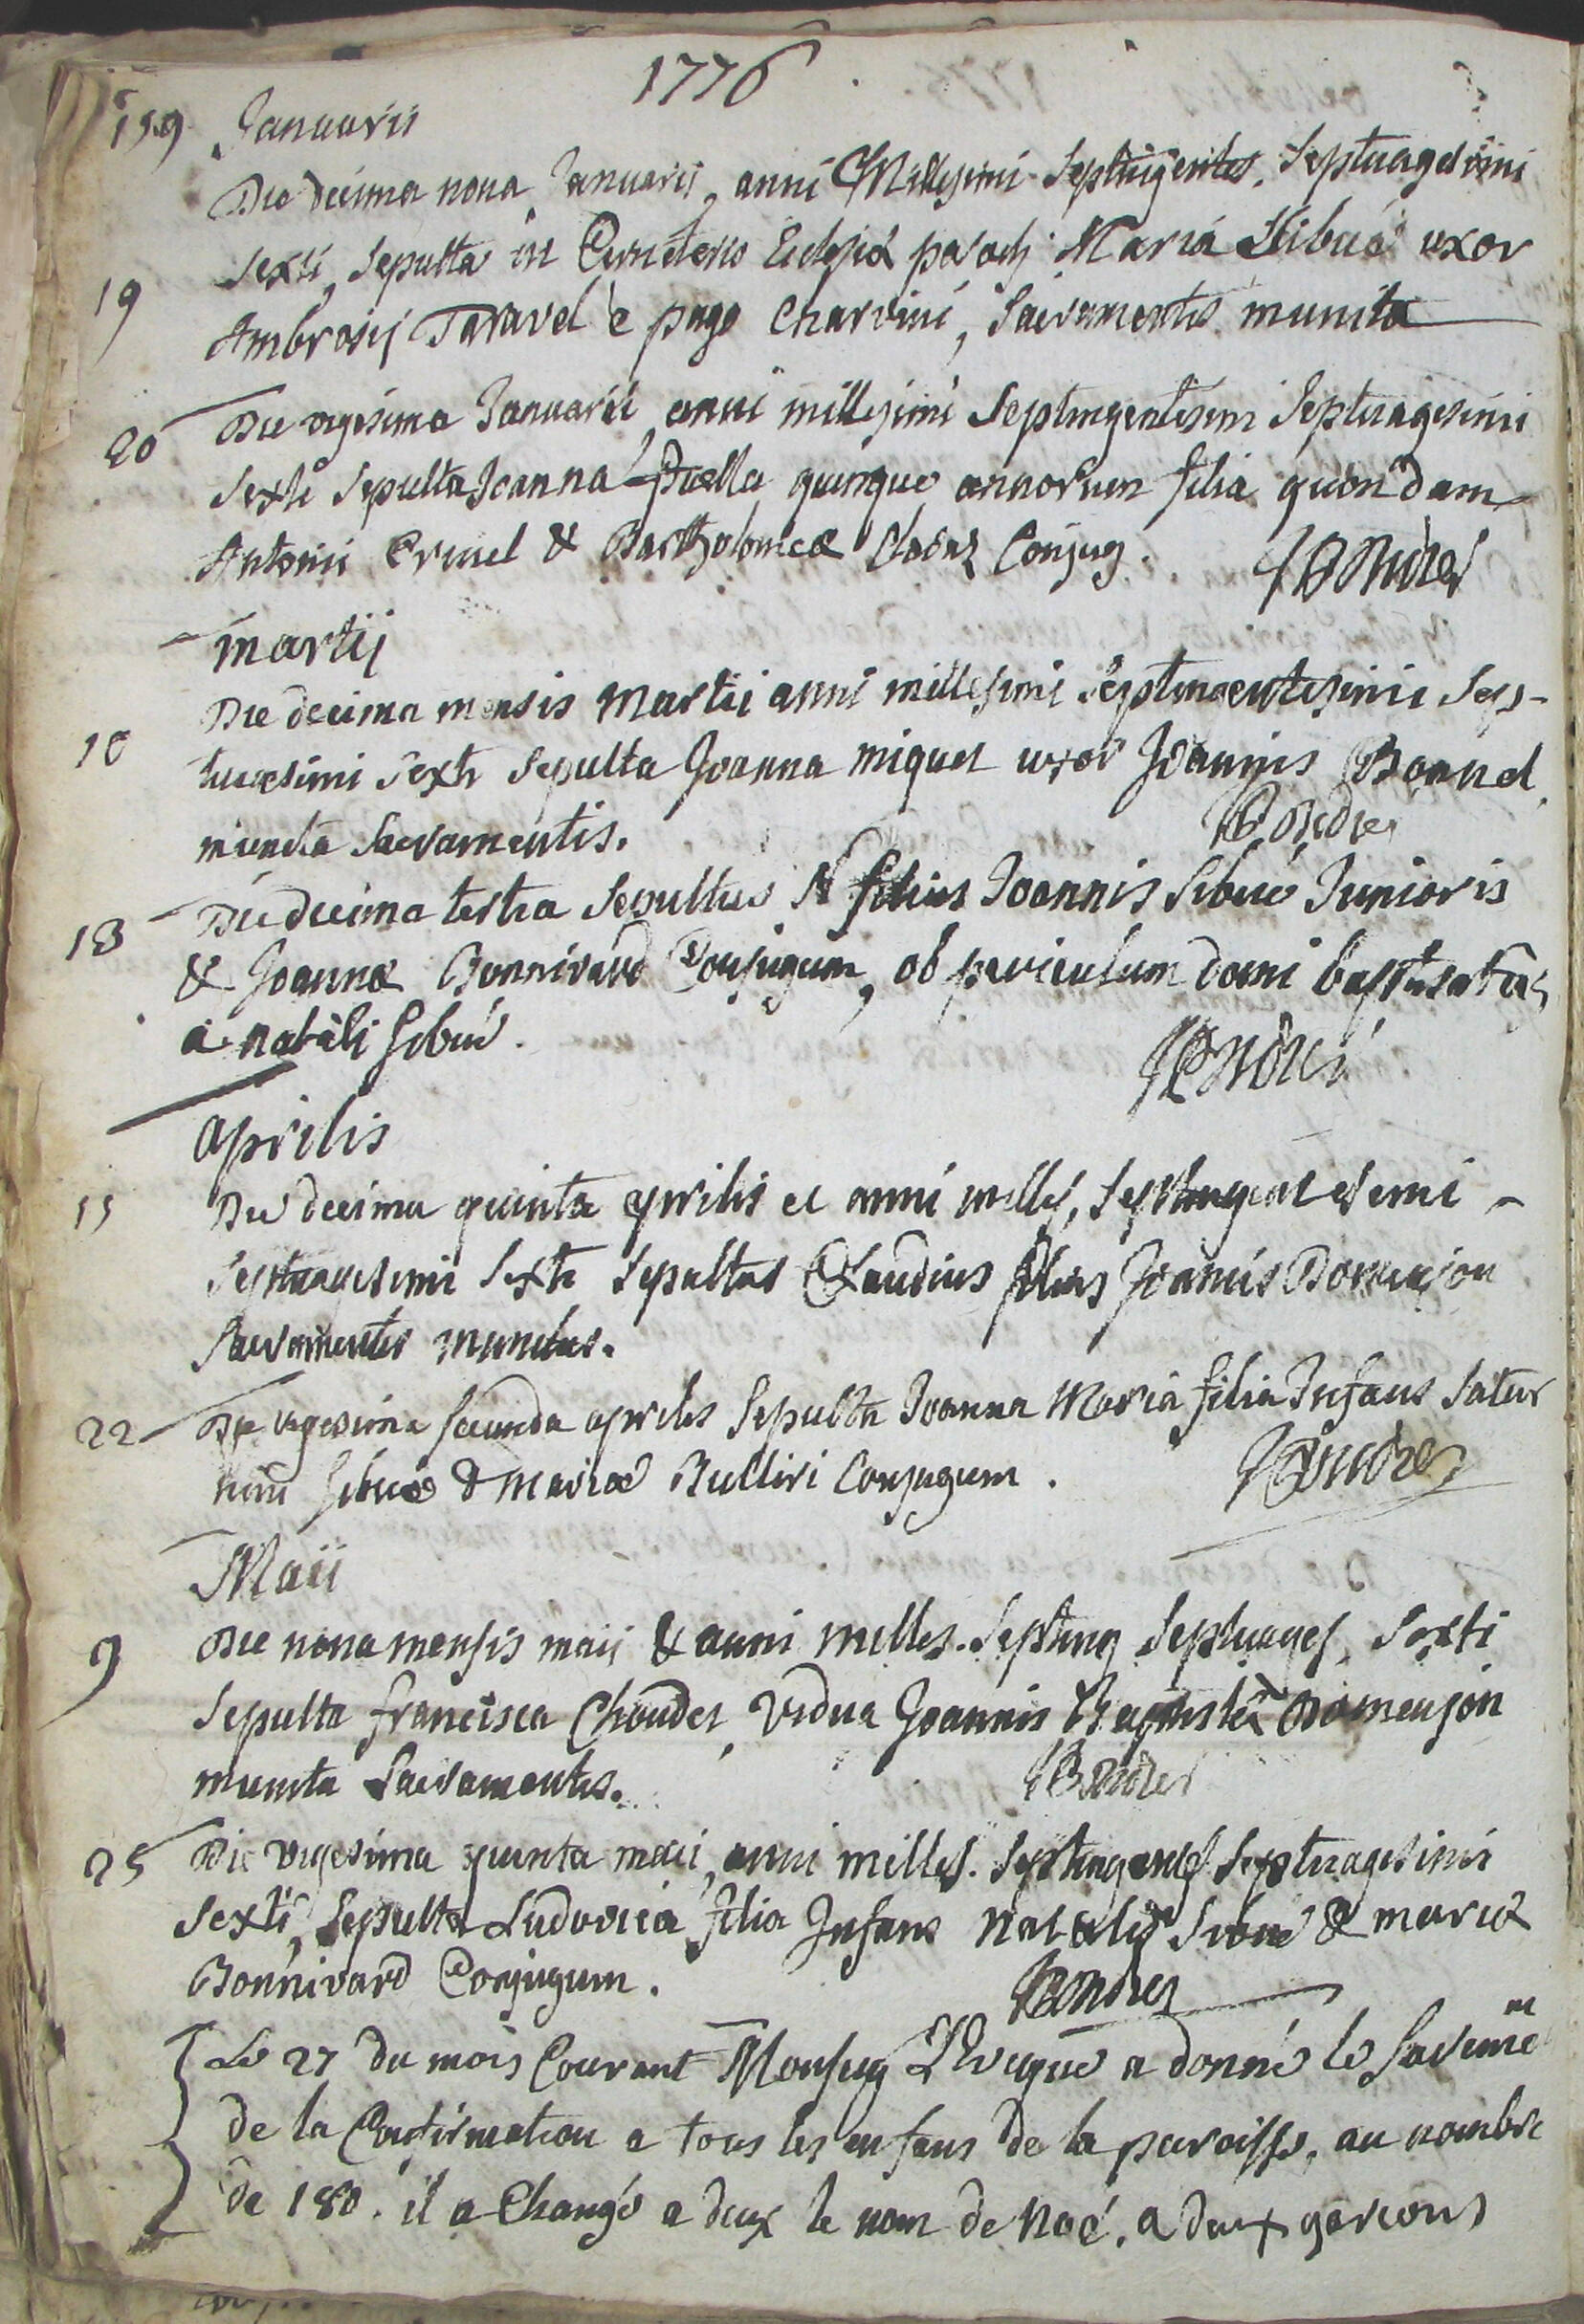 1776
159 Januarii
Die decima nona Januarij, anni Millesimi Septingentes. Septuagesimi
19 Sexti, Sepulta in Cemeterio Ecclesiæ paroch: Maria Sibué uxor
Ambrosij Taravel è pago Charvini, Sacramentis munita
20 Die vigesima Januarii anni millesimi Septingentesimi Septuagesimi
Sexti Sepulta Joanna Puella quinque annorum filia quondam
Antonii Cruuel & Bartholomeæ Clavaz Conjug.
martij
Die decima mensis martii anni millesimi Septingentesimi Sep-
10 tuagesimi Sexti Sepulta Joanna miquet uxor Joannis Bonnel
munita Sacramentis.
13 Die decima tertia Sepultus N filius Joannis Sibué Junioris
& Joannæ Bonnivard Conjugum, ob periculum domi baptisatus
a natali Sibué.
aprilis
15 Die decima quinta aprilis et anni milles. Septingentesimi
Septuagesimi Sexti Sepultus Claudius filius Joannis Domenjon
Sacramentis munitus.
22 Die vigesima secunda aprilis Sepulta Joanna Maria filia Infans Satur
nini Sibué & mariæ Bulliri Conjugum.
Maii
9 Die nona mensis maij & anni milles. Septing Septuages. Sexti
Sepulta francisca Choudet Vidua Joannis Baptistæ Domenjon
munita Sacramentis.
25 Die vigesima quinta maii, anni milles. Septingentes Septuagesimi
Sexti, Sepulta Ludovica filia Infans Natalis Sibué & mariæ
Bonnivard Conjugum.
Le 27 du mois Courant Monseig L'Evêque a donné le Sacremt
de la Confirmation a tous les enfans de la paroisse, au nombre
de 180. il a Changé a deux le nom de Noé. a deux garcons